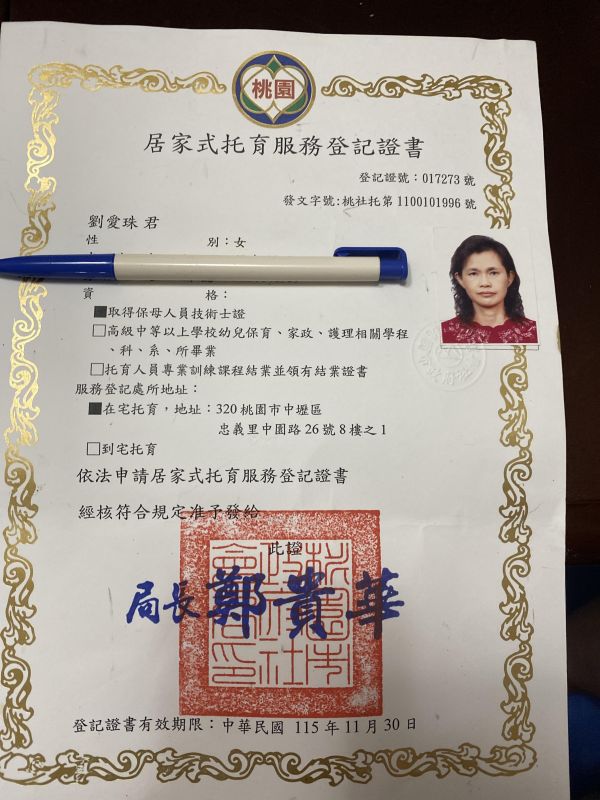 桃園
居家式托育服務登記證書
登記證號：017273號
發文字號:桃社托第1100101996號
劉愛珠 君
性 別：女
資 格：
■取得保母人員技術士證
□高級中等以上學校幼兒保育、家政、護理相關學程
、科、系、所畢業
□托育人員專業訓練課程結業並領有結業證書
服務登記處所地址：
■在宅托育，地址：320桃園市中壢區
忠義里中園路26號8樓之1
□到宅托育
依法申請居家式托育服務登記證書
經核符合規定准予發給
此證
局長 鄭貴華
桃園市政府社會局印
登記證書有效期限：中華民國 115年11月30日